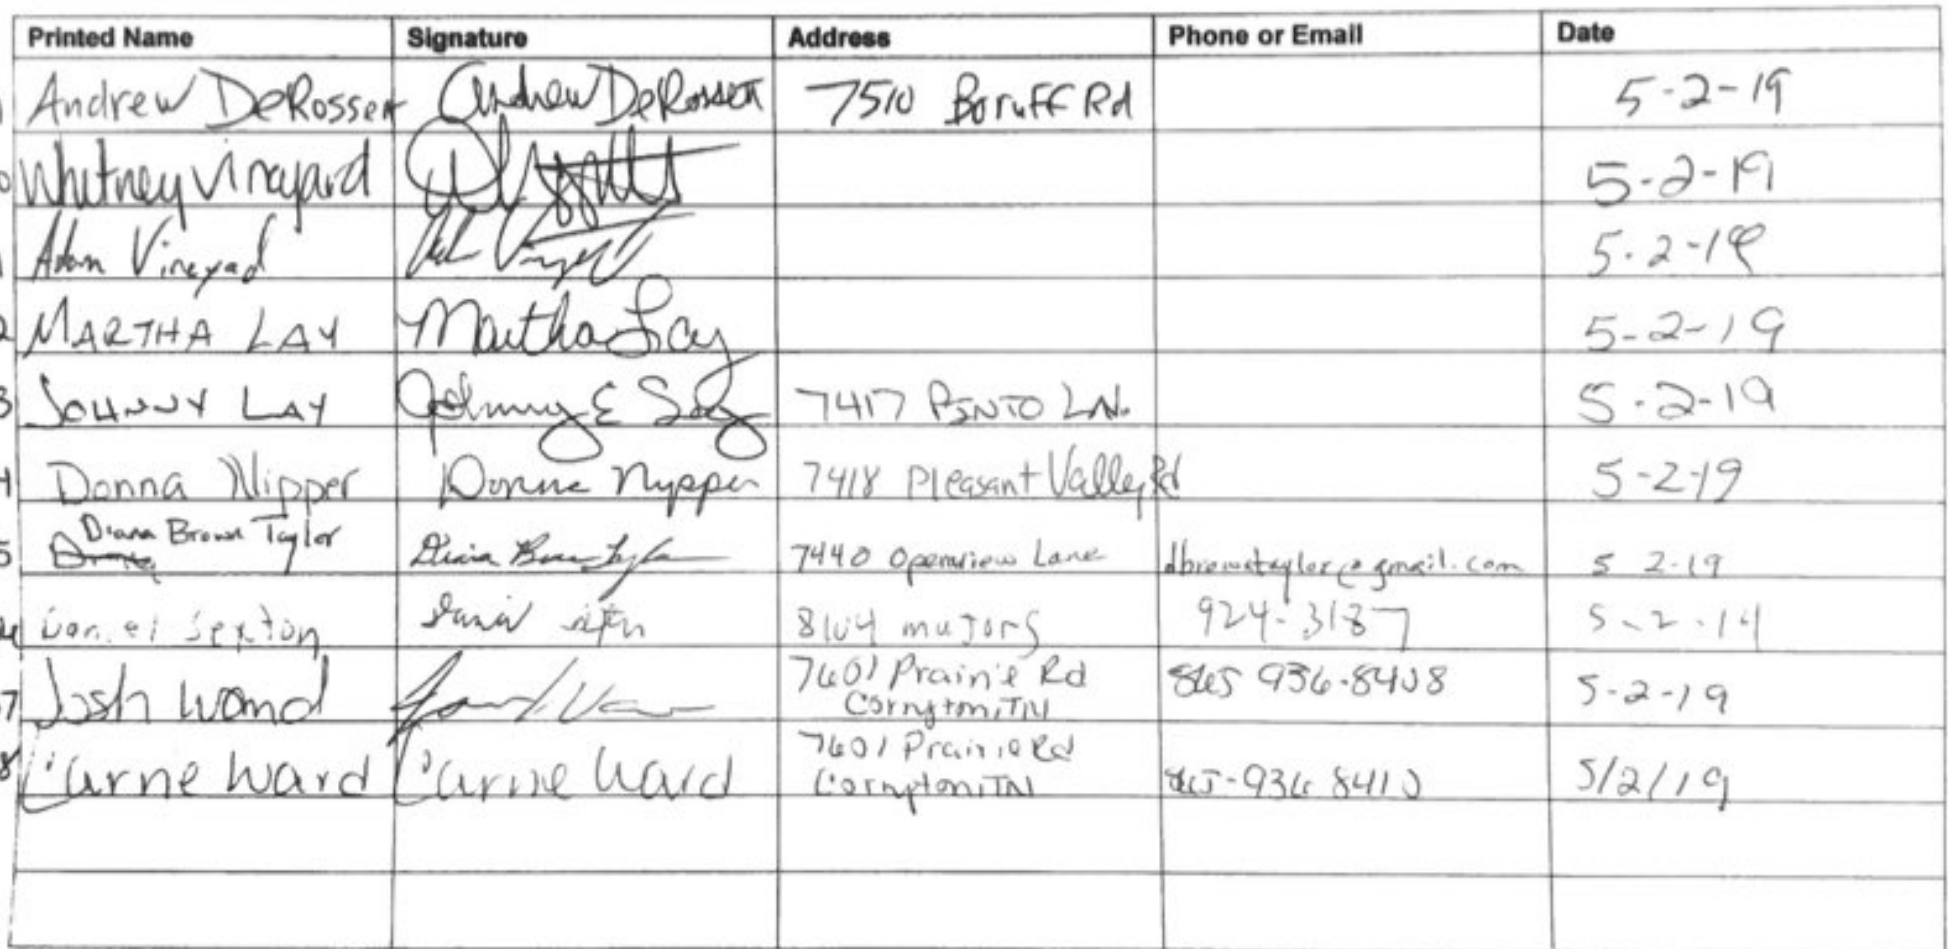 Printed Name Signature Address Phone or Email Date
Andrew DeRossett Andrew DeRossett 7510 Boruff Rd 5-2-19
Whitney Vineyard 5-2-19
Adam Vineyard 5-2-19
2 MARTHA LAY Martha Lay 5-2-19
3 JOHNNY LAY Johnny E Lay 7417 PINTO LN. 5-2-19
4 Donna Nipper Donna Nipper 7418 Pleasant Valley Rd 5-2-19
5 Diana Brown Taylor Diana Brown Taylor 7440 Lane dbrowntaylor@gmail.com 5 2-19
Daniel Sexton 8104 majors 924-3187
7 Josh Ward 7601 Prairie Rd 865 936-8408 5-2-19
Corryton, TN
8 Carrie Ward Carrie Ward 7601 Prairie Rd 865-936 8410 5/2/19
Corryton, TN